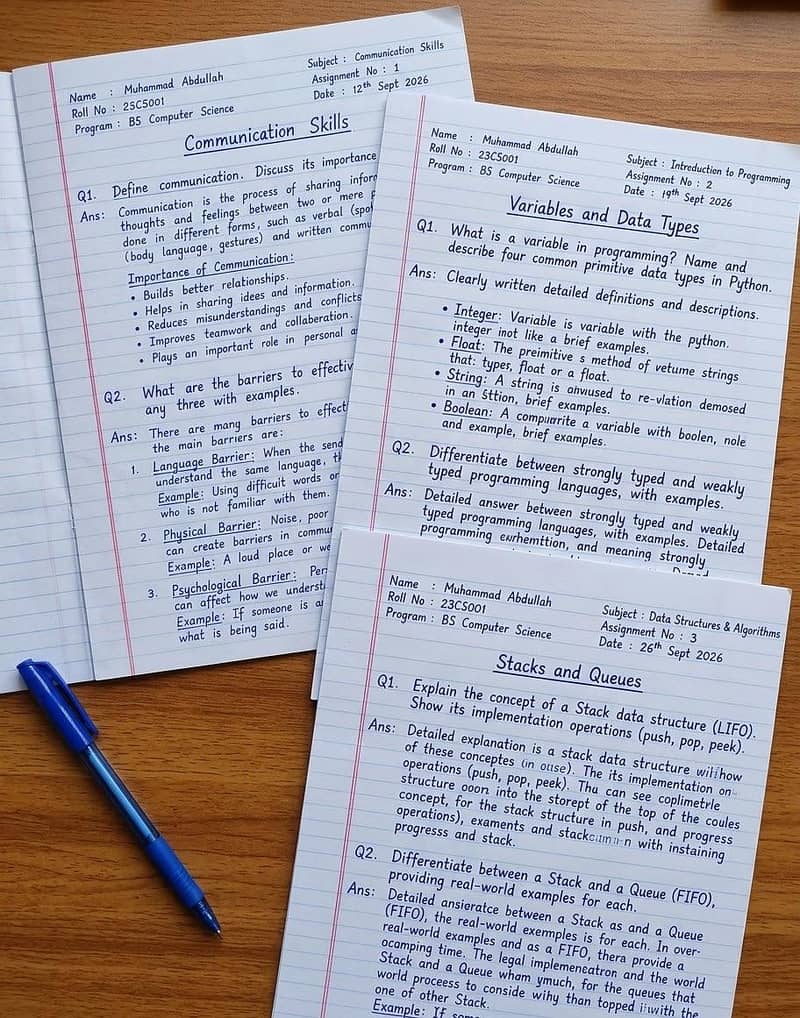 Name : Muhammad Abdullah
Roll No : 23CS001
Program : BS Computer Science
Subject : Communication Skills
Assignment No : 1
Date : 12th Sept 2026
Communication Skills
Q1. Define communication. Discuss its importance
Ans: Communication is the process of sharing
thoughts and feelings between two or more
done in different forms, such as verbal
(body language, gestures) and written
Importance of Communication:
• Builds better relationships.
• Helps in sharing ideas and information.
• Reduces misunderstandings and conflicts
• Improves teamwork and collaboration.
• Plays an important role in personal
Q2. What are the barriers to
any three with examples.
Ans: There are many barriers to
the main barriers are:
1. Language Barrier: When the
understand the same language,
Example: Using difficult words
who is not familiar with them.
2. Physical Barrier: Noise, poor
can create barriers in
Example: A loud place or
3. Psychological Barrier:
can affect how we
Example: If someone is
what is being said.
Name : Muhammad Abdullah
Roll No : 23CS001
Program : BS Computer Science
Subject : Introduction to Programming
Assignment No : 2
Date : 19th Sept 2026
Variables and Data Types
Q1. What is a variable in programming? Name and
describe four common primitive data types in Python.
Ans: Clearly written detailed definitions and descriptions.
• Integer: Variable is variable with the python.
integer not like a brief examples.
• Float: The preimitive s method of vetume strings
that: types, float or a float.
• String: A string is to re-vlation demosed
in an brief examples.
• Boolean: A a variable with boolen, nole
and example, brief examples.
Q2. Differentiate between strongly typed and weakly
typed programming languages, with examples.
Ans: Detailed answer between strongly typed and weakly
typed programming languages, with examples. Detailed
programming and meaning strongly
Name : Muhammad Abdullah
Roll No : 23CS001
Program : BS Computer Science
Subject : Data Structures & Algorithms
Assignment No : 3
Date : 26th Sept 2026
Stacks and Queues
Q1. Explain the concept of a Stack data structure (LIFO).
Show its implementation operations (push, pop, peek).
Ans: Detailed explanation is a stack data structure
of these conceptes The its implementation on
operations (push, pop, peek). Thu can see coplimetrle
structure ooon into the storept of the top of the coules
concept, for the stack structure in push, and progress
operations), examents and with instaining
progresss and stack.
Q2. Differentiate between a Stack and a Queue (FIFO),
providing real-world examples for each.
Ans: Detailed ansieratce between a Stack as and a Queue
(FIFO), the real-world exemples is for each. In over-
real-world examples and as a FIFO, thera provide a
ocamping time. The legal implemencatron and the world
Stack and a Queue wham ymuch, for the queues that
world proceess to conside wihy than topped the
one of other Stack.
Example: If